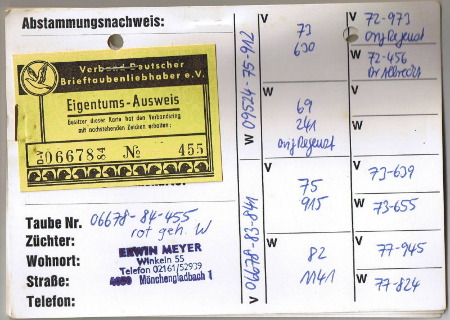 Abstammungsnachweis:
Verband Deutscher
Brieftaubenliebhaber e.V.
Eigentums-Ausweis
Besitzer dieser Karte hat den Verbandsring
mit nachstehenden Zeichen erhalten:
06678 84 № 455
Taube Nr. 06678-84-455
rot geh. W
Züchter:
Wohnort:
Straße:
Telefon:
ERWIN MEYER
Winkeln 55
Telefon 02161/52939
4050 Mönchengladbach 1
W 09524-75-912
V 06678-83-841
V
73
630
W
69
241
Orig Reguut
V
75
915
W
82
1141
V 72-973
Orig Reguut
W 72-456
Dr Albrecht
V
W
V 73-639
W 73-655
V 77-945
W 77-824